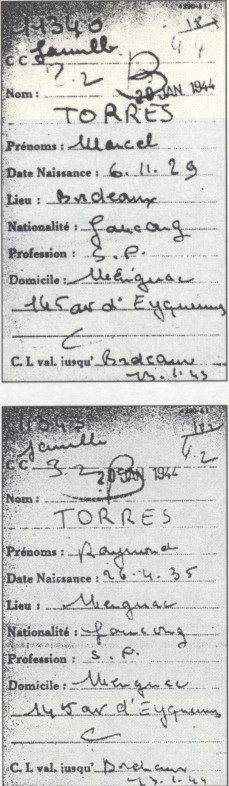 11340
famille
C C
2.2
B
20 JAN. 1944
Nom :
TORRES
Prénoms : Marcel
Date Naissance : 6. 11. 29
Lieu : Bordeaux
Nationalité :
Profession : S. P.
Domicile : Mérignac
145 av d'Eyquemes
C
C. I. val. jusqu' Bordeaux
famille
C C
20 JAN 1944
Nom :
TORRES
Prénoms : Raymond
Date Naissance : 26. 4. 35
Lieu : Merignac
Nationalité :
Profession : S. P.
Domicile : Merignac
145 av d'Eyquemes
C
C. I. val. jusqu' Bordeaux